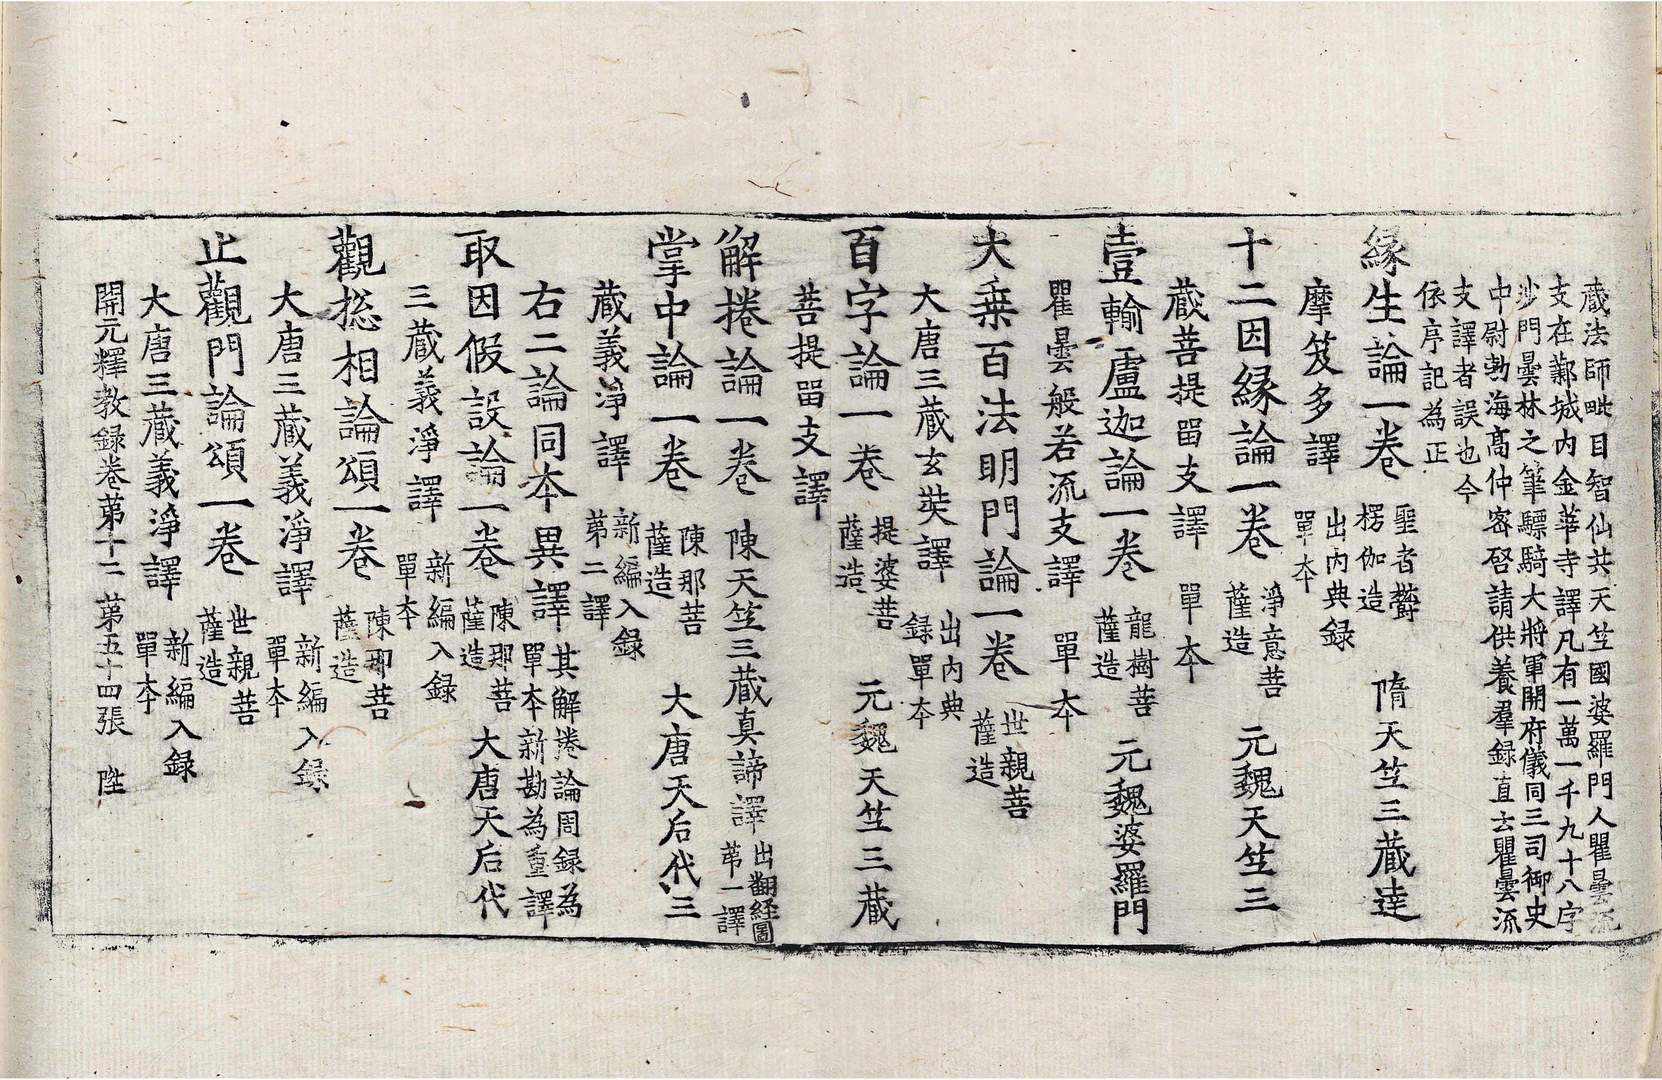 蔵法師毗目智仙共天竺國婆羅門人瞿曇流
支在鄴城內金華寺譯凡有一萬一千九十八字
沙門曇林之筆驃騎大將軍開府儀同三司御史
中尉勃海髙仲密啓請供養羣録直云瞿曇流
支譯者誤也今
依序記為正
縁生論一卷 聖者欝
楞伽造 隋天竺三藏達
摩笈多譯 出內典録
單本
十二因縁論一卷 淨意菩
薩造 元魏天竺三
藏菩提留支譯 單本
壹輸盧迦論一卷 龍樹菩
薩造 元魏婆羅門
瞿曇般若流支譯 單本
大乗百法明門論一卷 世親菩
薩造
大唐三藏玄奘譯 出內典
録單本
百字論一卷 提婆菩
薩造 元魏天竺三藏
菩提留支譯
解捲論一卷 陳天竺三藏真諦譯 出翻経圖
苐一譯
掌中論一卷 陳那菩
薩造 大唐天后代三
藏義淨譯 新編入録
苐二譯
右二論同本異譯 其解捲論周録為
單本新勘為重譯
取因假設論一卷 陳那菩
薩造 大唐天后代
三藏義淨譯 新編入録
單本
觀揔相論頌一卷 陳那菩
薩造
大唐三藏義淨譯 新編入録
單本
止觀門論頌一卷 世親菩
薩造
大唐三藏義淨譯 新編入録
單本
開元釋教録卷苐十二 苐五十四張 陞